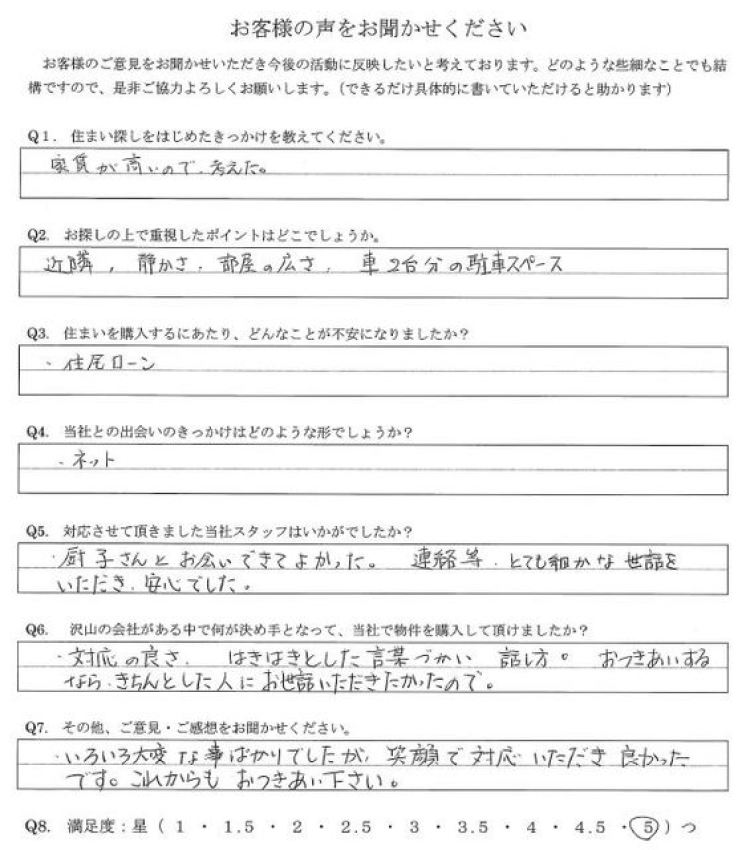 お客様の声をお聞かせください
お客様のご意見をお聞かせいただき今後の活動に反映したいと考えております。どのような些細なことでも結
構ですので、是非ご協力よろしくお願いします。（できるだけ具体的に書いていただけると助かります）
Q1. 住まい探しをはじめたきっかけを教えてください。
家賃が高いので、考えた。
Q2. お探しの上で重視したポイントはどこでしょうか。
近隣, 静かさ, 部屋の広さ, 車2台分の駐車スペース
Q3. 住まいを購入するにあたり、どんなことが不安になりましたか？
・住宅ローン
Q4. 当社との出会いのきっかけはどのような形でしょうか？
・ネット
Q5. 対応させて頂きました当社スタッフはいかがでしたか？
・厨子さんとお会いできてよかった。 連絡等、とても細かな世話を
いただき、安心でした。
Q6. 沢山の会社がある中で何が決め手となって、当社で物件を購入して頂けましたか？
・対応の良さ、 はきはきとした言葉づかい 話し方。 おつきあいする
なら、きちんとした人にお世話いただきたかったので。
Q7. その他、ご意見・ご感想をお聞かせください。
・いろいろ大変な事ばかりでしたが、笑顔で対応いただき良かった
です。これからもおつきあい下さい。
Q8. 満足度：星（ 1 ・ 1.5 ・ 2 ・ 2.5 ・ 3 ・ 3.5 ・ 4 ・ 4.5 ・ 5 ）つ